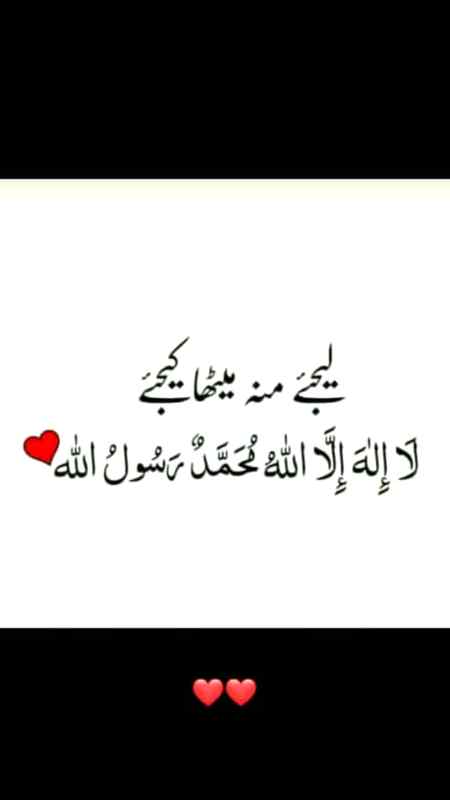 لیجئے منہ میٹھا کیجئے
لَا إِلٰهَ إِلَّا اللهُ مُحَمَّدٌ رَسُولُ الله ❤️
❤️❤️